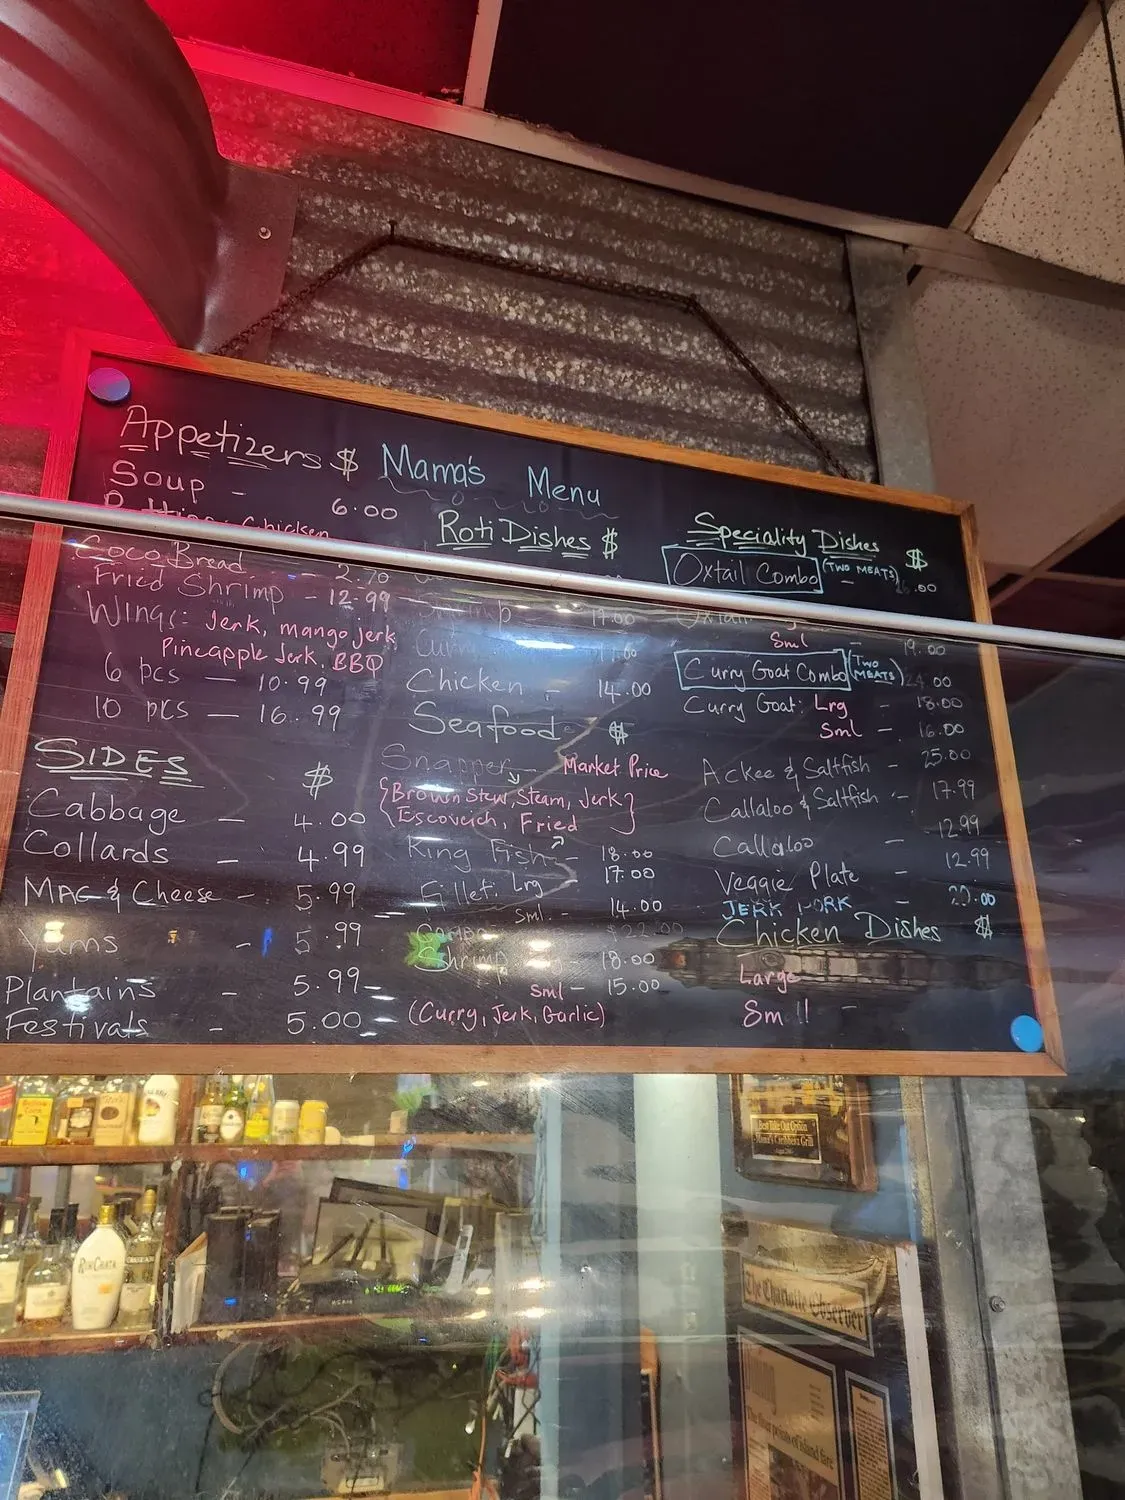 Mama's Menu
Appetizers $
Soup - 6.00
Chicken
Coco Bread - 2.70
Fried Shrimp - 12.99
Wings: Jerk, mango jerk,
Pineapple Jerk, BBQ
6 pcs — 10.99
10 pcs — 16.99
SIDES $
Cabbage - 4.00
Collards - 4.99
MAC & Cheese - 5.99
Yams - 5.99
Plantains - 5.99
Festivals - 5.00
Roti Dishes $
Chicken - 14.00
Seafood $
Snapper - Market Price
{Brown Stew, Steam, Jerk}
Escoveich, Fried
King Fish - 18.00
17.00
Fillet: Lrg
Sml. - 14.00
$22.00
Shrimp - 18.00
Sml - 15.00
(Curry, Jerk, Garlic)
Speciality Dishes $
Oxtail Combo (TWO MEATS) -
Oxtail
Sml - 19.00
Curry Goat Combo (TWO MEATS) 24.00
Curry Goat: Lrg - 18.00
Sml - 16.00
Ackee & Saltfish - 25.00
Callaloo & Saltfish - 17.99
Callaloo - 12.99
Veggie Plate - 12.99
JERK PORK - 20.00
Chicken Dishes $
Large
Sm ll -
Best Take Out Option
Mama's Caribbean Grill
RUMCHATA
The Charlotte Observer
The finer points of island fare